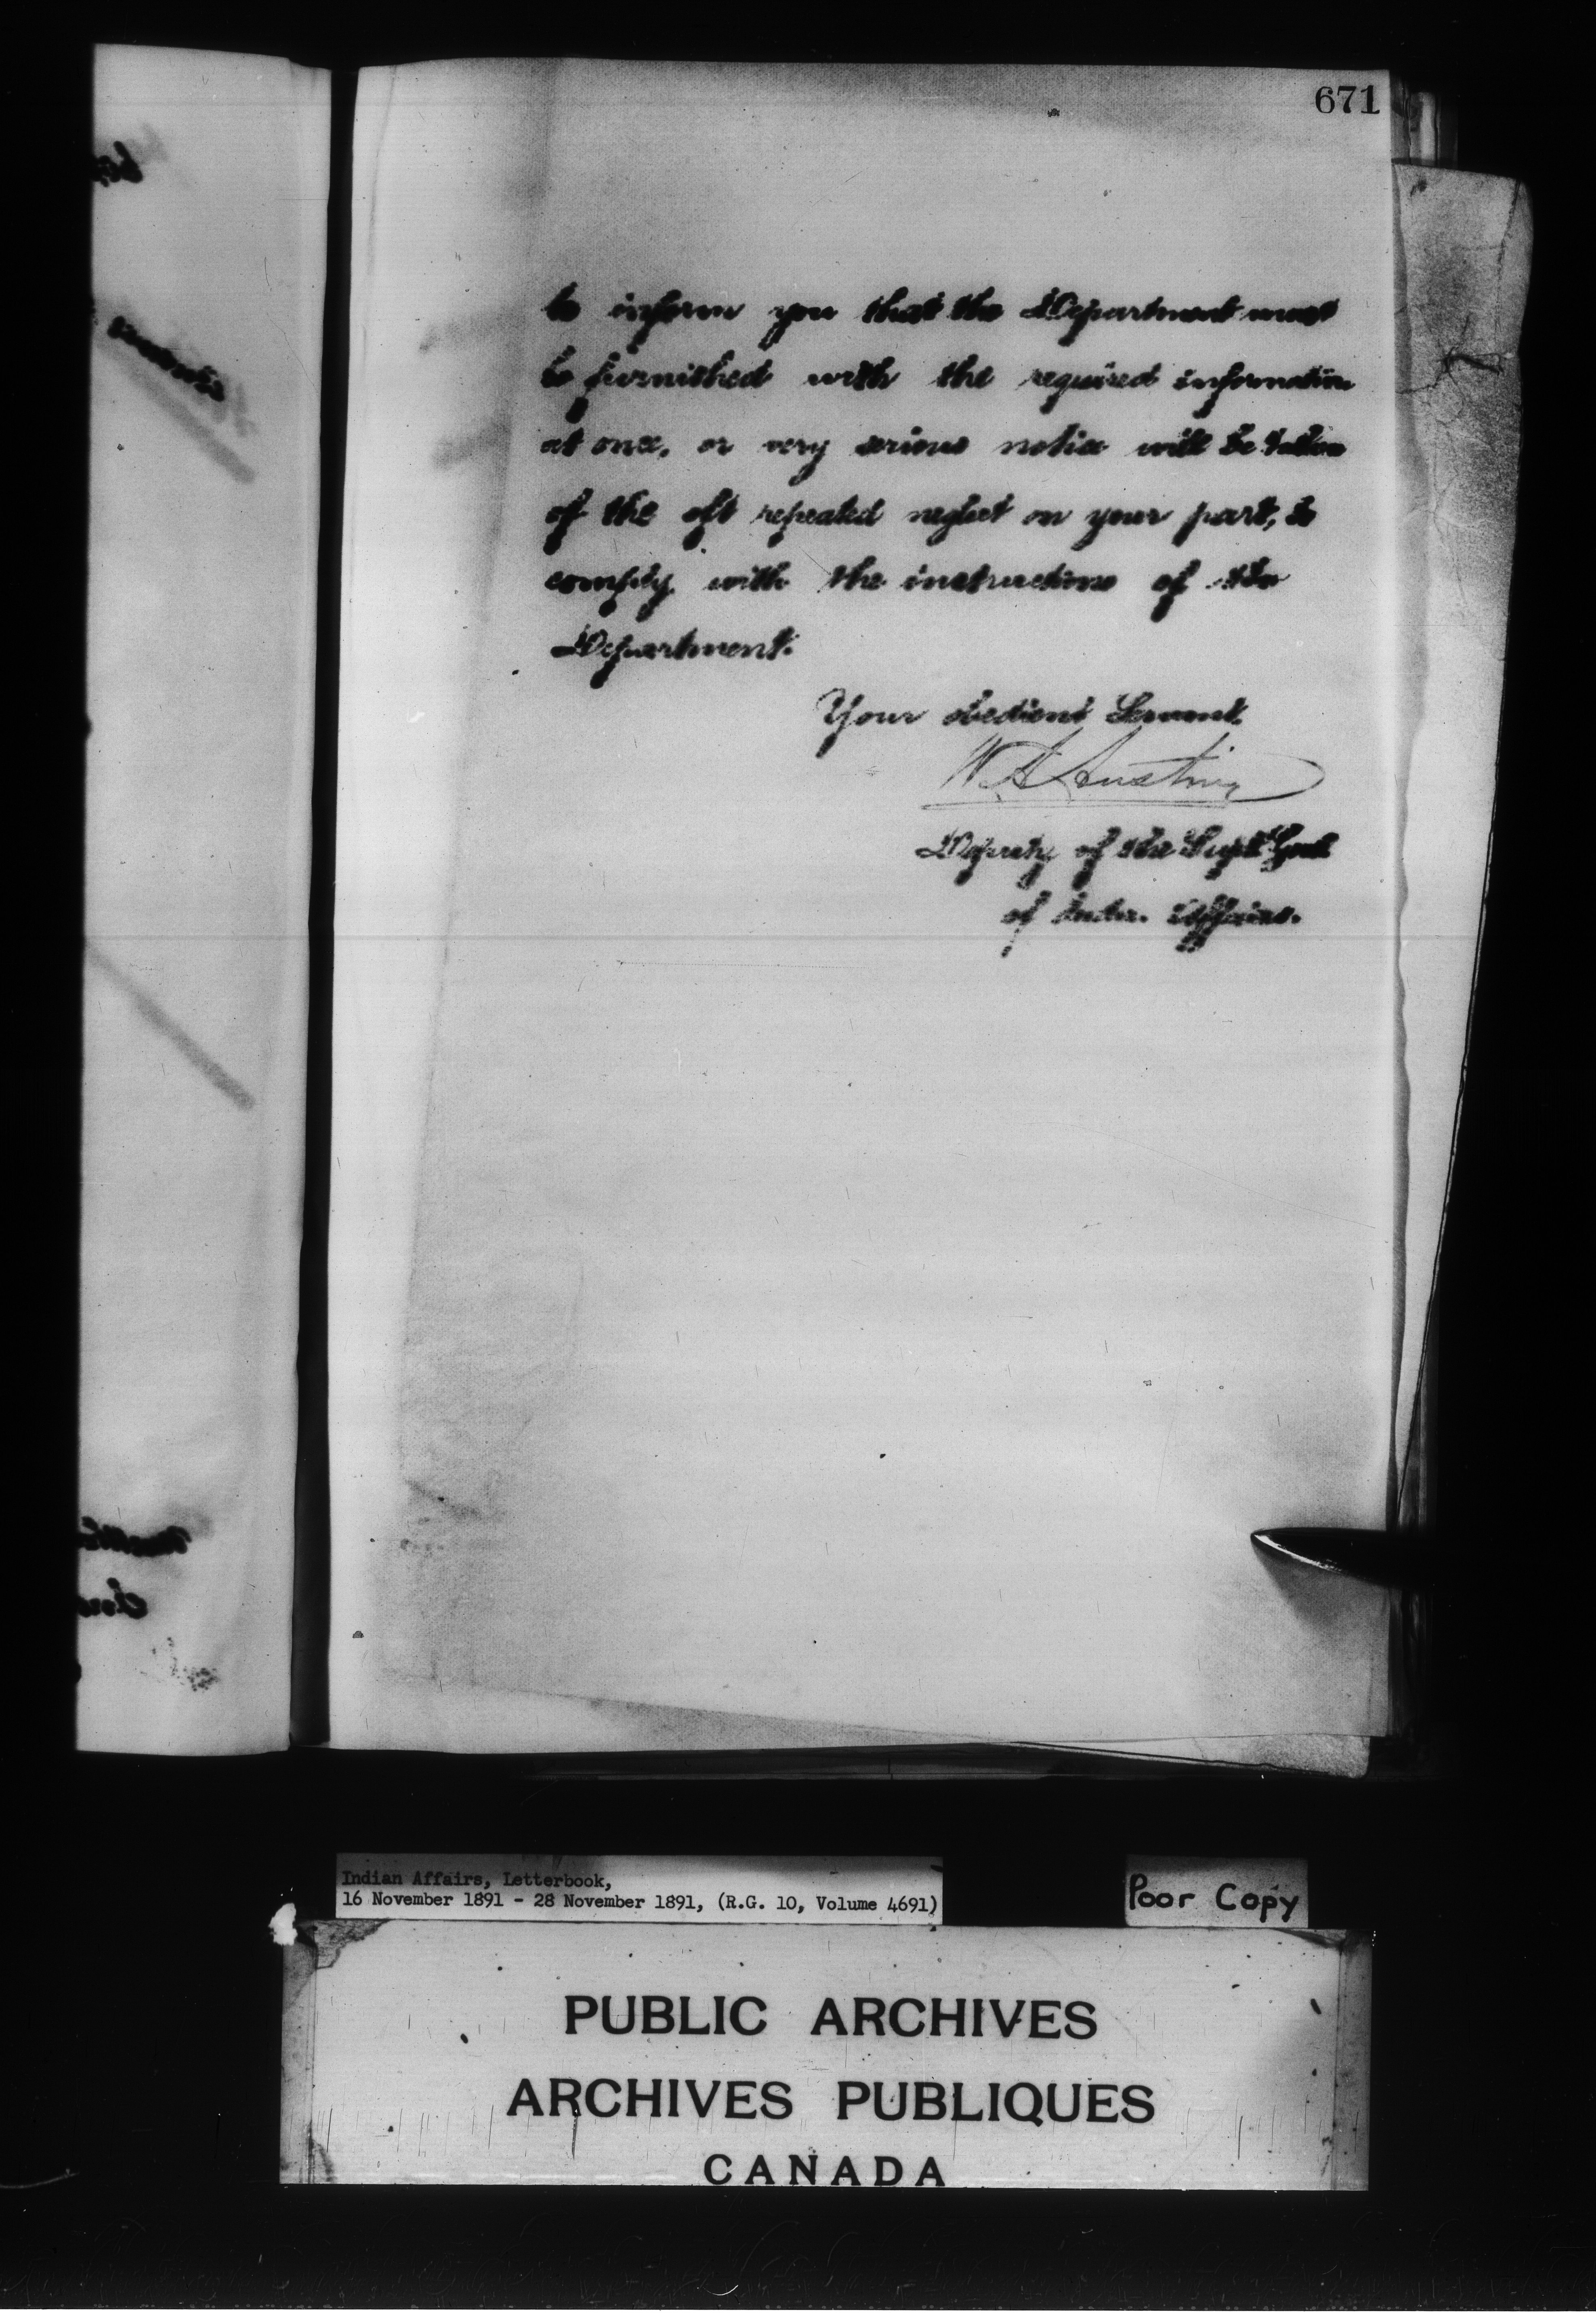 671
to inform you that the Department must
be furnished with the required information
at once, or very serious notice will be taken
of the oft repeated neglect on your part, to
comply with the instructions of the
Department.
Your obedient Servant
Deputy of the Supt Genl
of Indn. Affairs.
Indian Affairs, Letterbook,
16 November 1891 - 28 November 1891, (R.G. 10, Volume 4691)
Poor Copy
PUBLIC ARCHIVES
ARCHIVES PUBLIQUES
CANADA